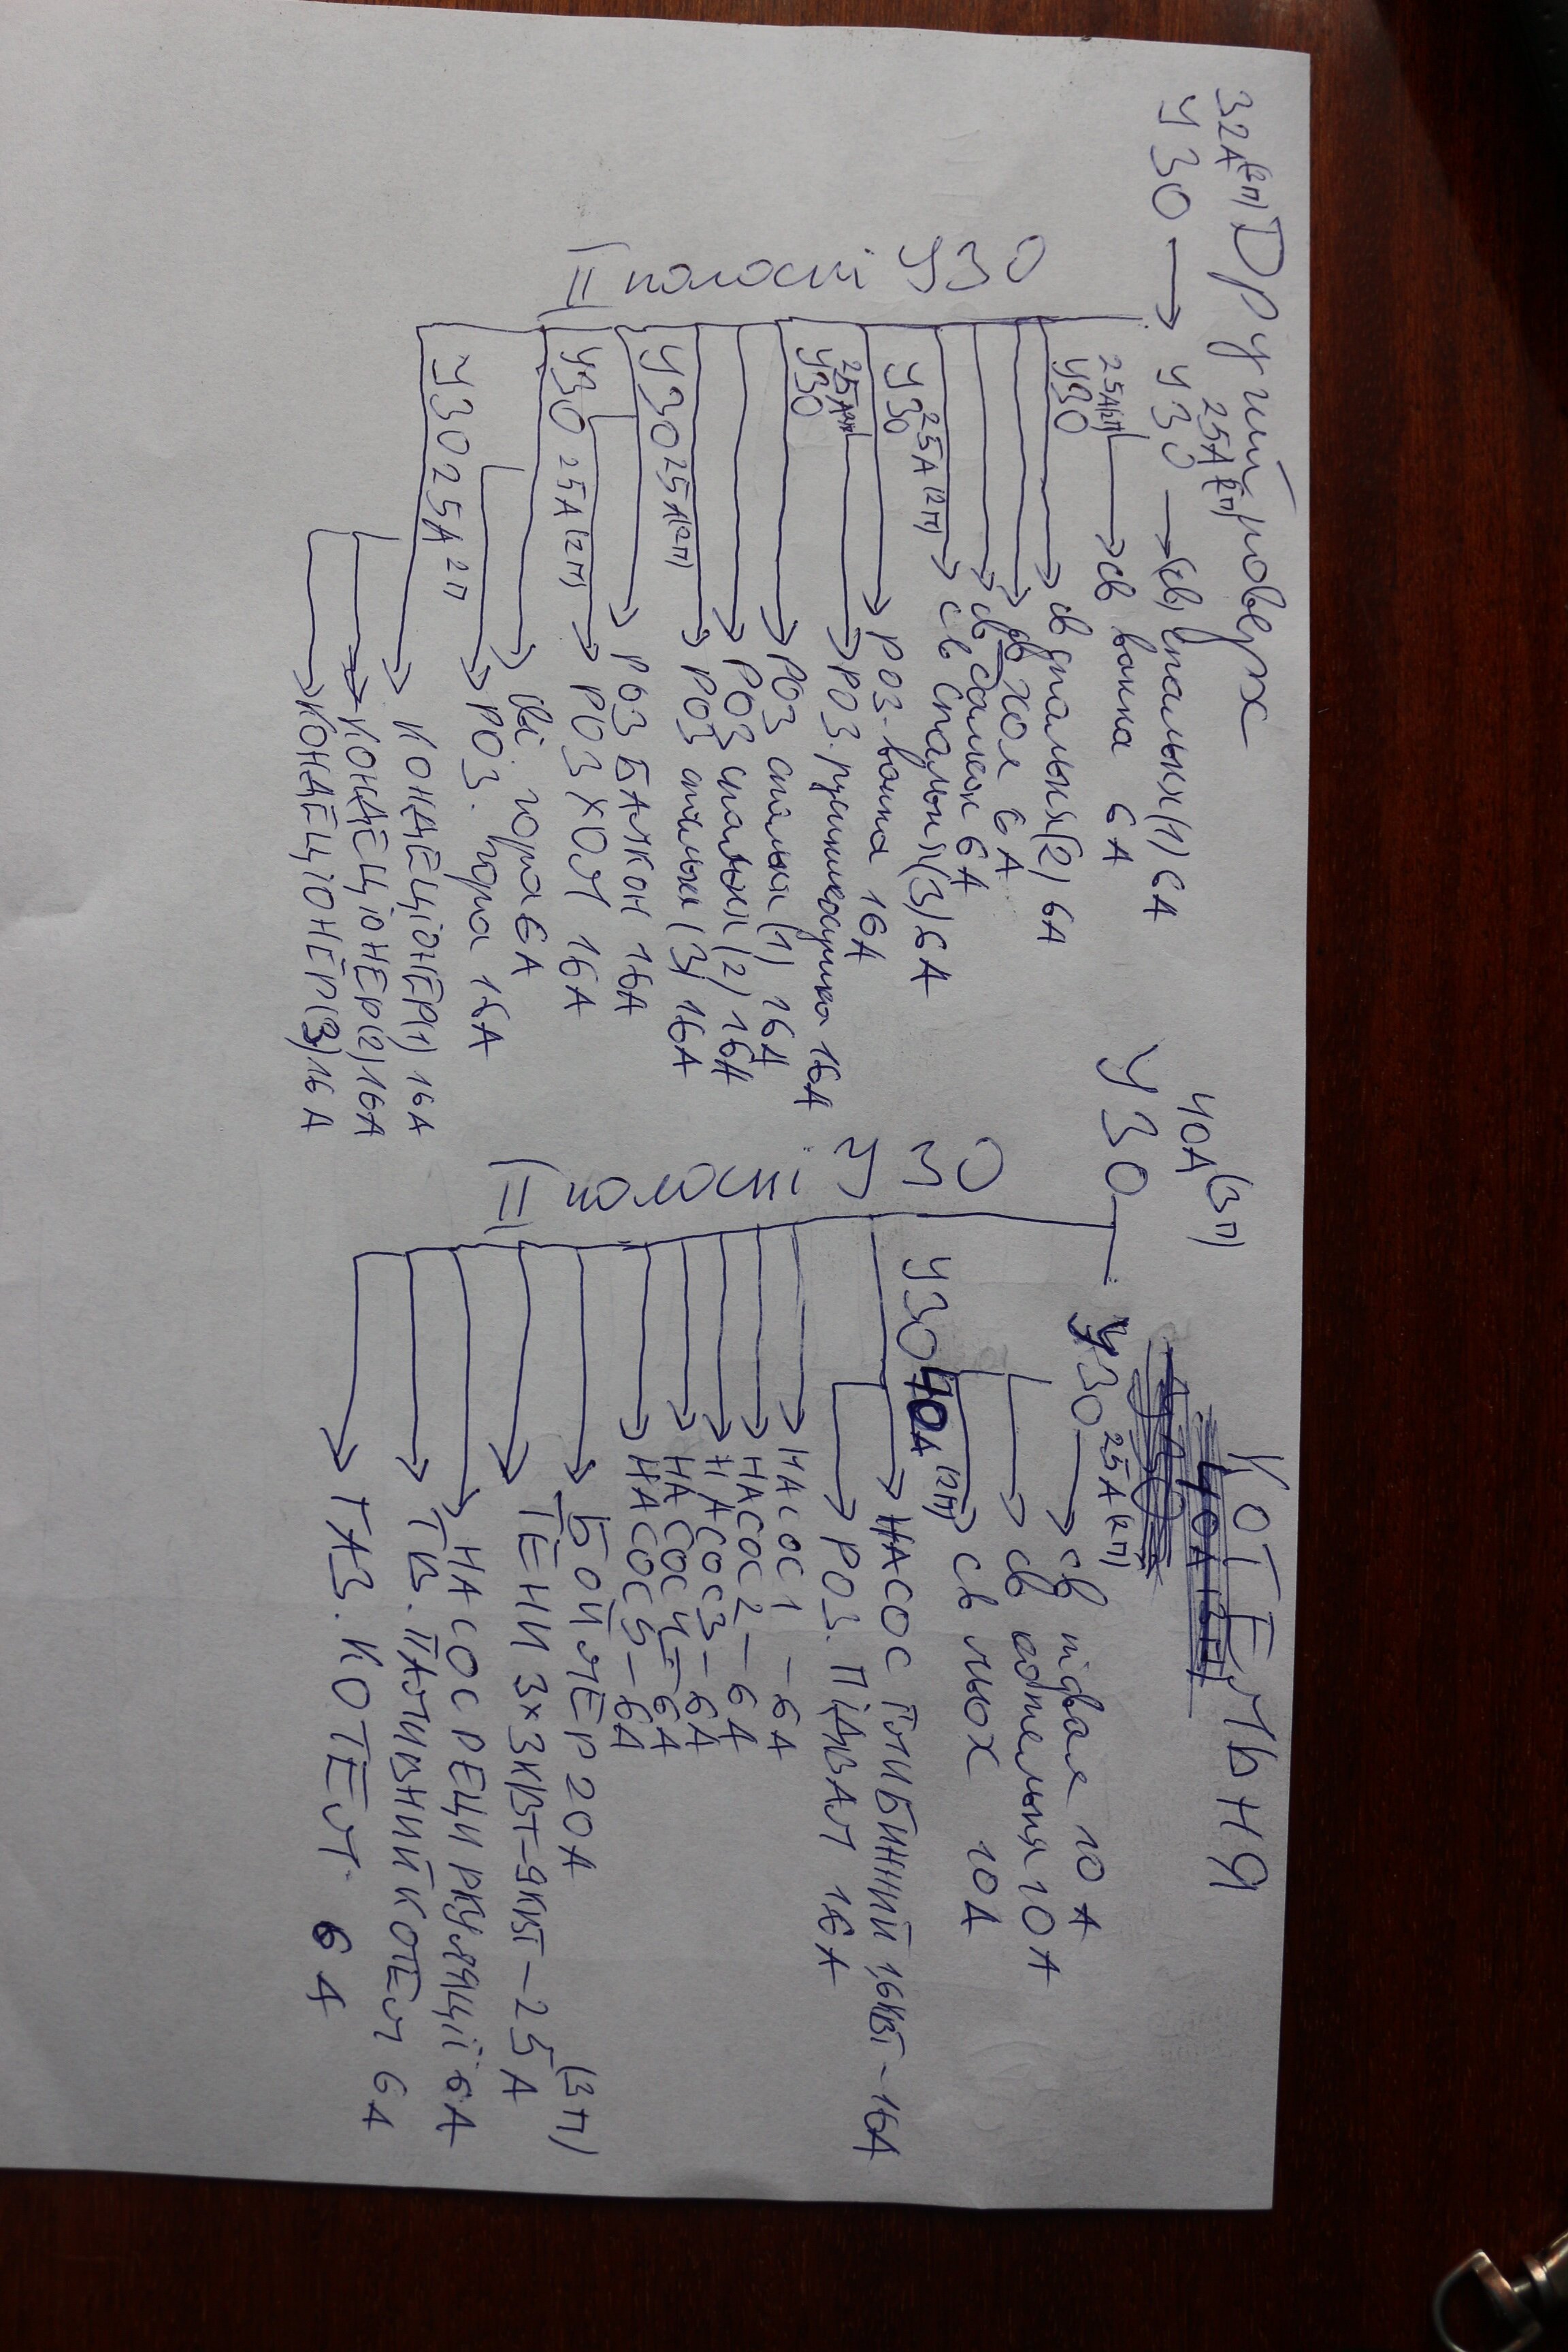 Другий поверх
32А(2п) 25А(2п)
УЗО УЗО св спальня(1) 6А
25А(2п)
УЗО св ванна 6А
св спальня(2) 6А
св хол 6А
св балкон 6А
УЗО 25А(2п) св спальня(3) 6А
РОЗ. ванна 16А
25А(2п)
УЗО РОЗ. рушникосушка 16А
РОЗ спальня (1) 16А
РОЗ спальня (2) 16А
УЗО 25А(2п) РОЗ спальня (3) 16А
РОЗ БАЛКОН 16А
УЗО 25А(2п) РОЗ ХОЛ 16А
св. гора 6А
РОЗ. гора 16А
УЗО 25А 2п КОНДЕЦІОНЕР(1) 16А
КОНДЕЦІОНЕР(2) 16А
КОНДЕЦІОНЕР(3) 16А
II полосні УЗО
КОТЕЛЬНЯ
40А(3п)
УЗО УЗО 25А(2п) св підвал 10А
св котельня 10А
св льох 10А
УЗО 40А(2п) НАСОС ГЛИБИННИЙ 1,6КВТ - 16А
РОЗ. ПІДВАЛ 16А
НАСОС 1 - 6А
НАСОС 2 - 6А
НАСОС 3 - 6А
НАСОС 4 - 6А
НАСОС 5 - 6А
БОЙЛЕР 20А
ТЕНИ 3х3КВТ-9КВТ - 25А (3п)
НАСОС РЕЦИРКУЛЯЦІЇ 6А
ТВ. ПАЛИВНИЙ КОТЕЛ 6А
ГАЗ. КОТЕЛ 6А
II полосні УЗО